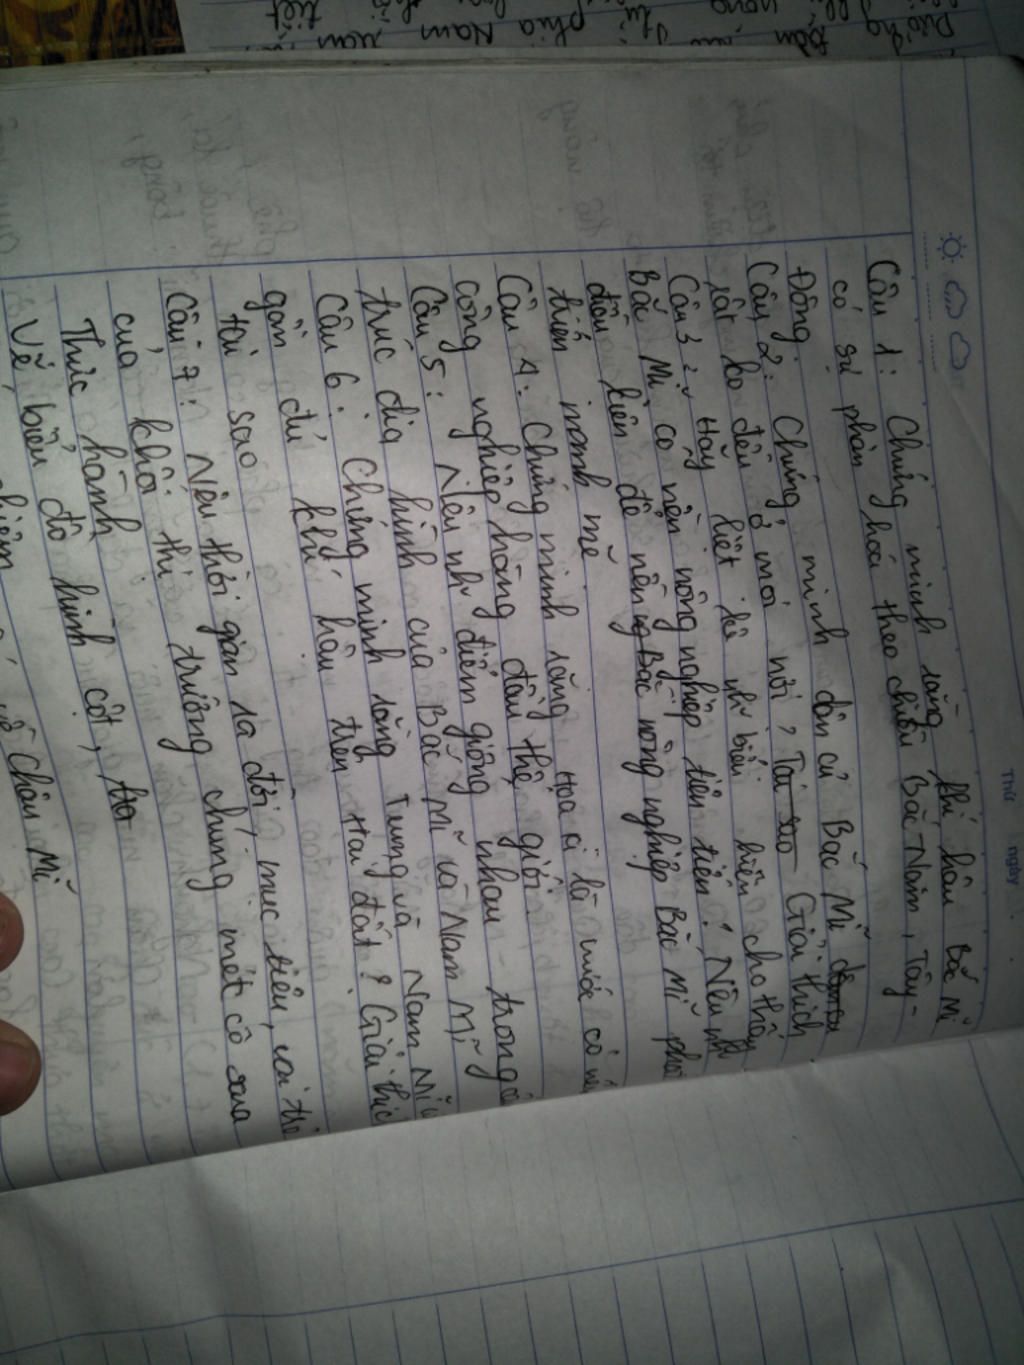 Thứ ngày
Câu 1: Chứng minh rằng khí hậu Bắc Mĩ
có sự phân hoá theo chiều Bắc-Nam, Tây-
Đông.
Câu 2: Chứng minh dân cư Bắc Mĩ
rất ko đều ở mọi nơi? Tại sao Giải thích
Câu 3: Hãy liệt kê nh biểu hiện cho thấy
Bắc Mĩ có nền nông nghiệp tiên tiến? Nêu nh
điều kiện để nền ng Bắc nông nghiệp Bắc Mĩ phát
triển mạnh mẽ
Câu 4: Chứng minh rằng Hoa cì là nước có nền
công nghiệp hàng đầu thế giới?
Câu 5: Nêu nh điểm giống nhau trong
trúc địa hình của Bắc Mĩ và Nam Mĩ
Câu 6: Chứng minh rằng Trung và Nam Mĩ
gần đủ khí hậu trên trái đất? Giải thíc
tại sao
Câu 7: Nêu thời gian ra đời, mục tiêu, vai
của khối thị trường chung mét cô xua
Thực hành
Vẽ biểu đồ hình cột,
Châu Mĩ